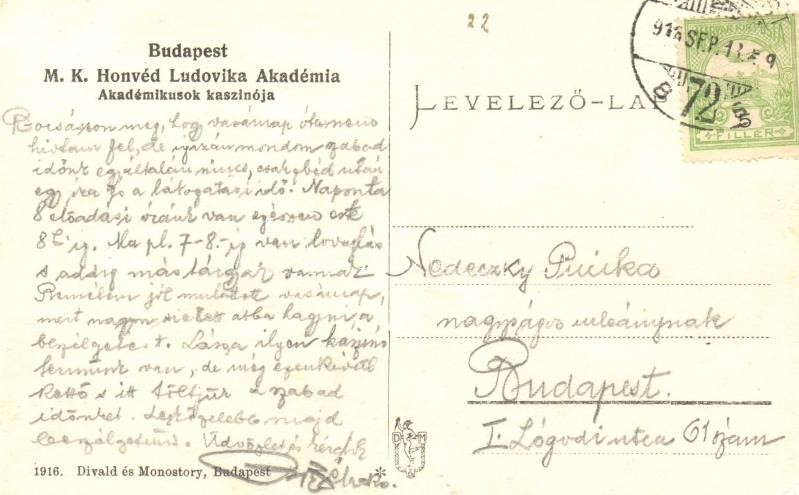 22
Budapest
M. K. Honvéd Ludovika Akadémia
Akadémikusok kaszinója
LEVELEZŐ-LAP
916 SEP. 13
72
FILLÉR
Bocsásson meg, hogy vasárnap
hívtam fel, de igazán mondom szabad
időnk egyáltalán nincs, csak ebéd után
egy óra és a látogatási idő. Naponta
8 előadási óránk van egészen este
8h ig. Ma pl. 7-8.-ig van lovaglás
s addig más tárgyak vannak
Remélem jól mulatott vasárnap,
mert nagyon sietett abba hagyni a
beszélgetést. Lássa ilyen kaszinó
termünk van, de még ezenkívül
kettő s itt töltjük a szabad
időnket. Legközelebb majd
beszélgetünk. Üdvözlet és kézcsók
Nedeczky Puczika
nagyságos urleánynak
Budapest.
I. Lógodi utca 61 szám
D M
1916. Divald és Monostory, Budapest